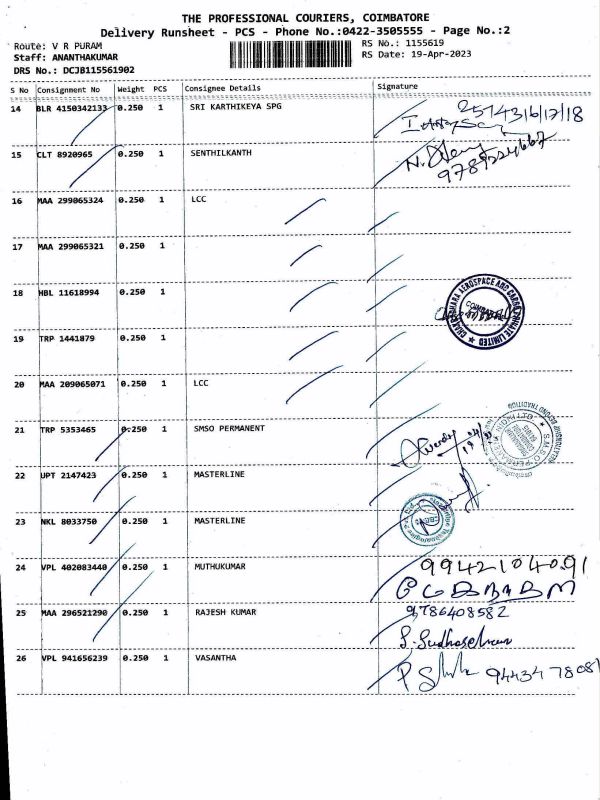 THE PROFESSIONAL COURIERS, COIMBATORE
Delivery Runsheet - PCS - Phone No.:0422-3505555 - Page No.:2
Route: V R PURAM
RS No.: 1155619
Staff: ANANTHAKUMAR
RS Date: 19-Apr-2023
DRS No.: DCJB115561902
S No Consignment No Weight PCS Consignee Details Signature
14 BLR 4150342133 0.250 1 SRI KARTHIKEYA SPG
15 CLT 8920965 0.250 1 SENTHILKANTH
16 MAA 299065324 0.250 1 LCC
17 MAA 299065321 0.250 1
18 HBL 11618994 0.250 1
COIMBATORE
19 TRP 1441879 0.250 1
20 MAA 209065071 0.250 1 LCC
21 TRP 5353465 0.250 1 SMSO PERMANENT
22 UPT 2147423 0.250 1 MASTERLINE
23 NKL 8033750 0.250 1 MASTERLINE
24 VPL 402083440 0.250 1 MUTHUKUMAR
9942104091
25 MAA 296521290 0.250 1 RAJESH KUMAR
9786408582
26 VPL 941656239 0.250 1 VASANTHA
9443478081